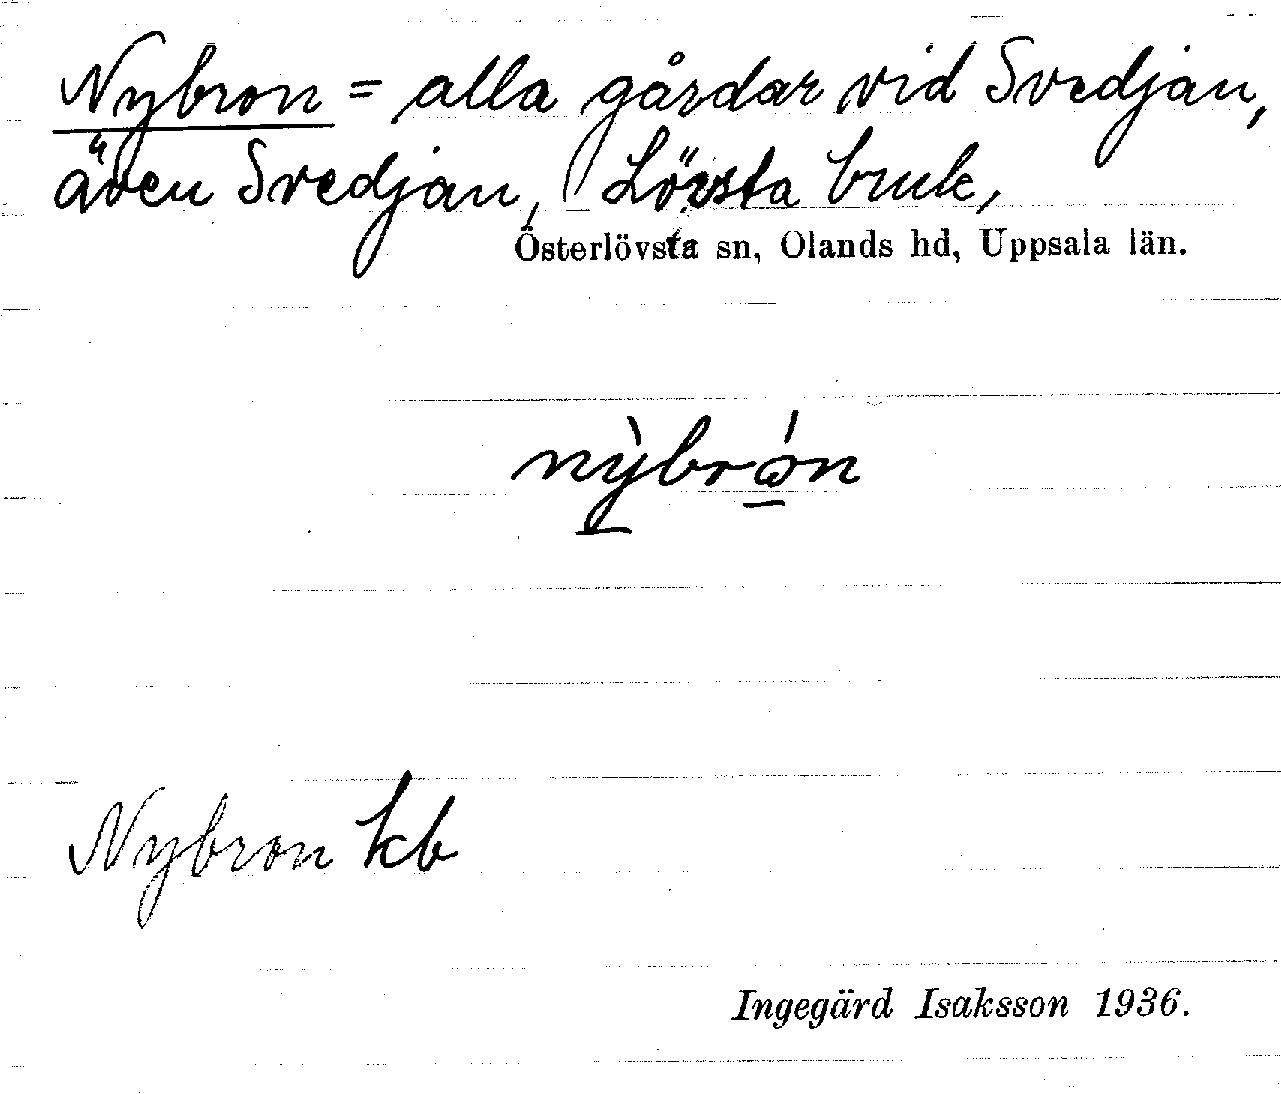 Nybron = alla gårdar vid Svedjan,
även Svedjan, Lövsta bruk,
Österlövsta sn, Olands hd, Uppsala län.
nỳbrǿn
Nybron kb
Ingegärd Isaksson 1936.